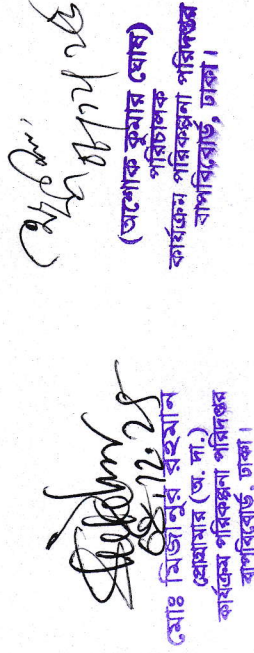 ০৪.১২.২৫
মোঃ মিজানুর রহমান
প্রোগ্রামার (অ. দা.)
কার্যক্রম পরিকল্পনা পরিদপ্তর
বাপবিবোর্ড, ঢাকা।
(অশোক কুমার ঘোষ)
পরিচালক
কার্যক্রম পরিকল্পনা পরিদপ্তর
বাপবিবোর্ড, ঢাকা।